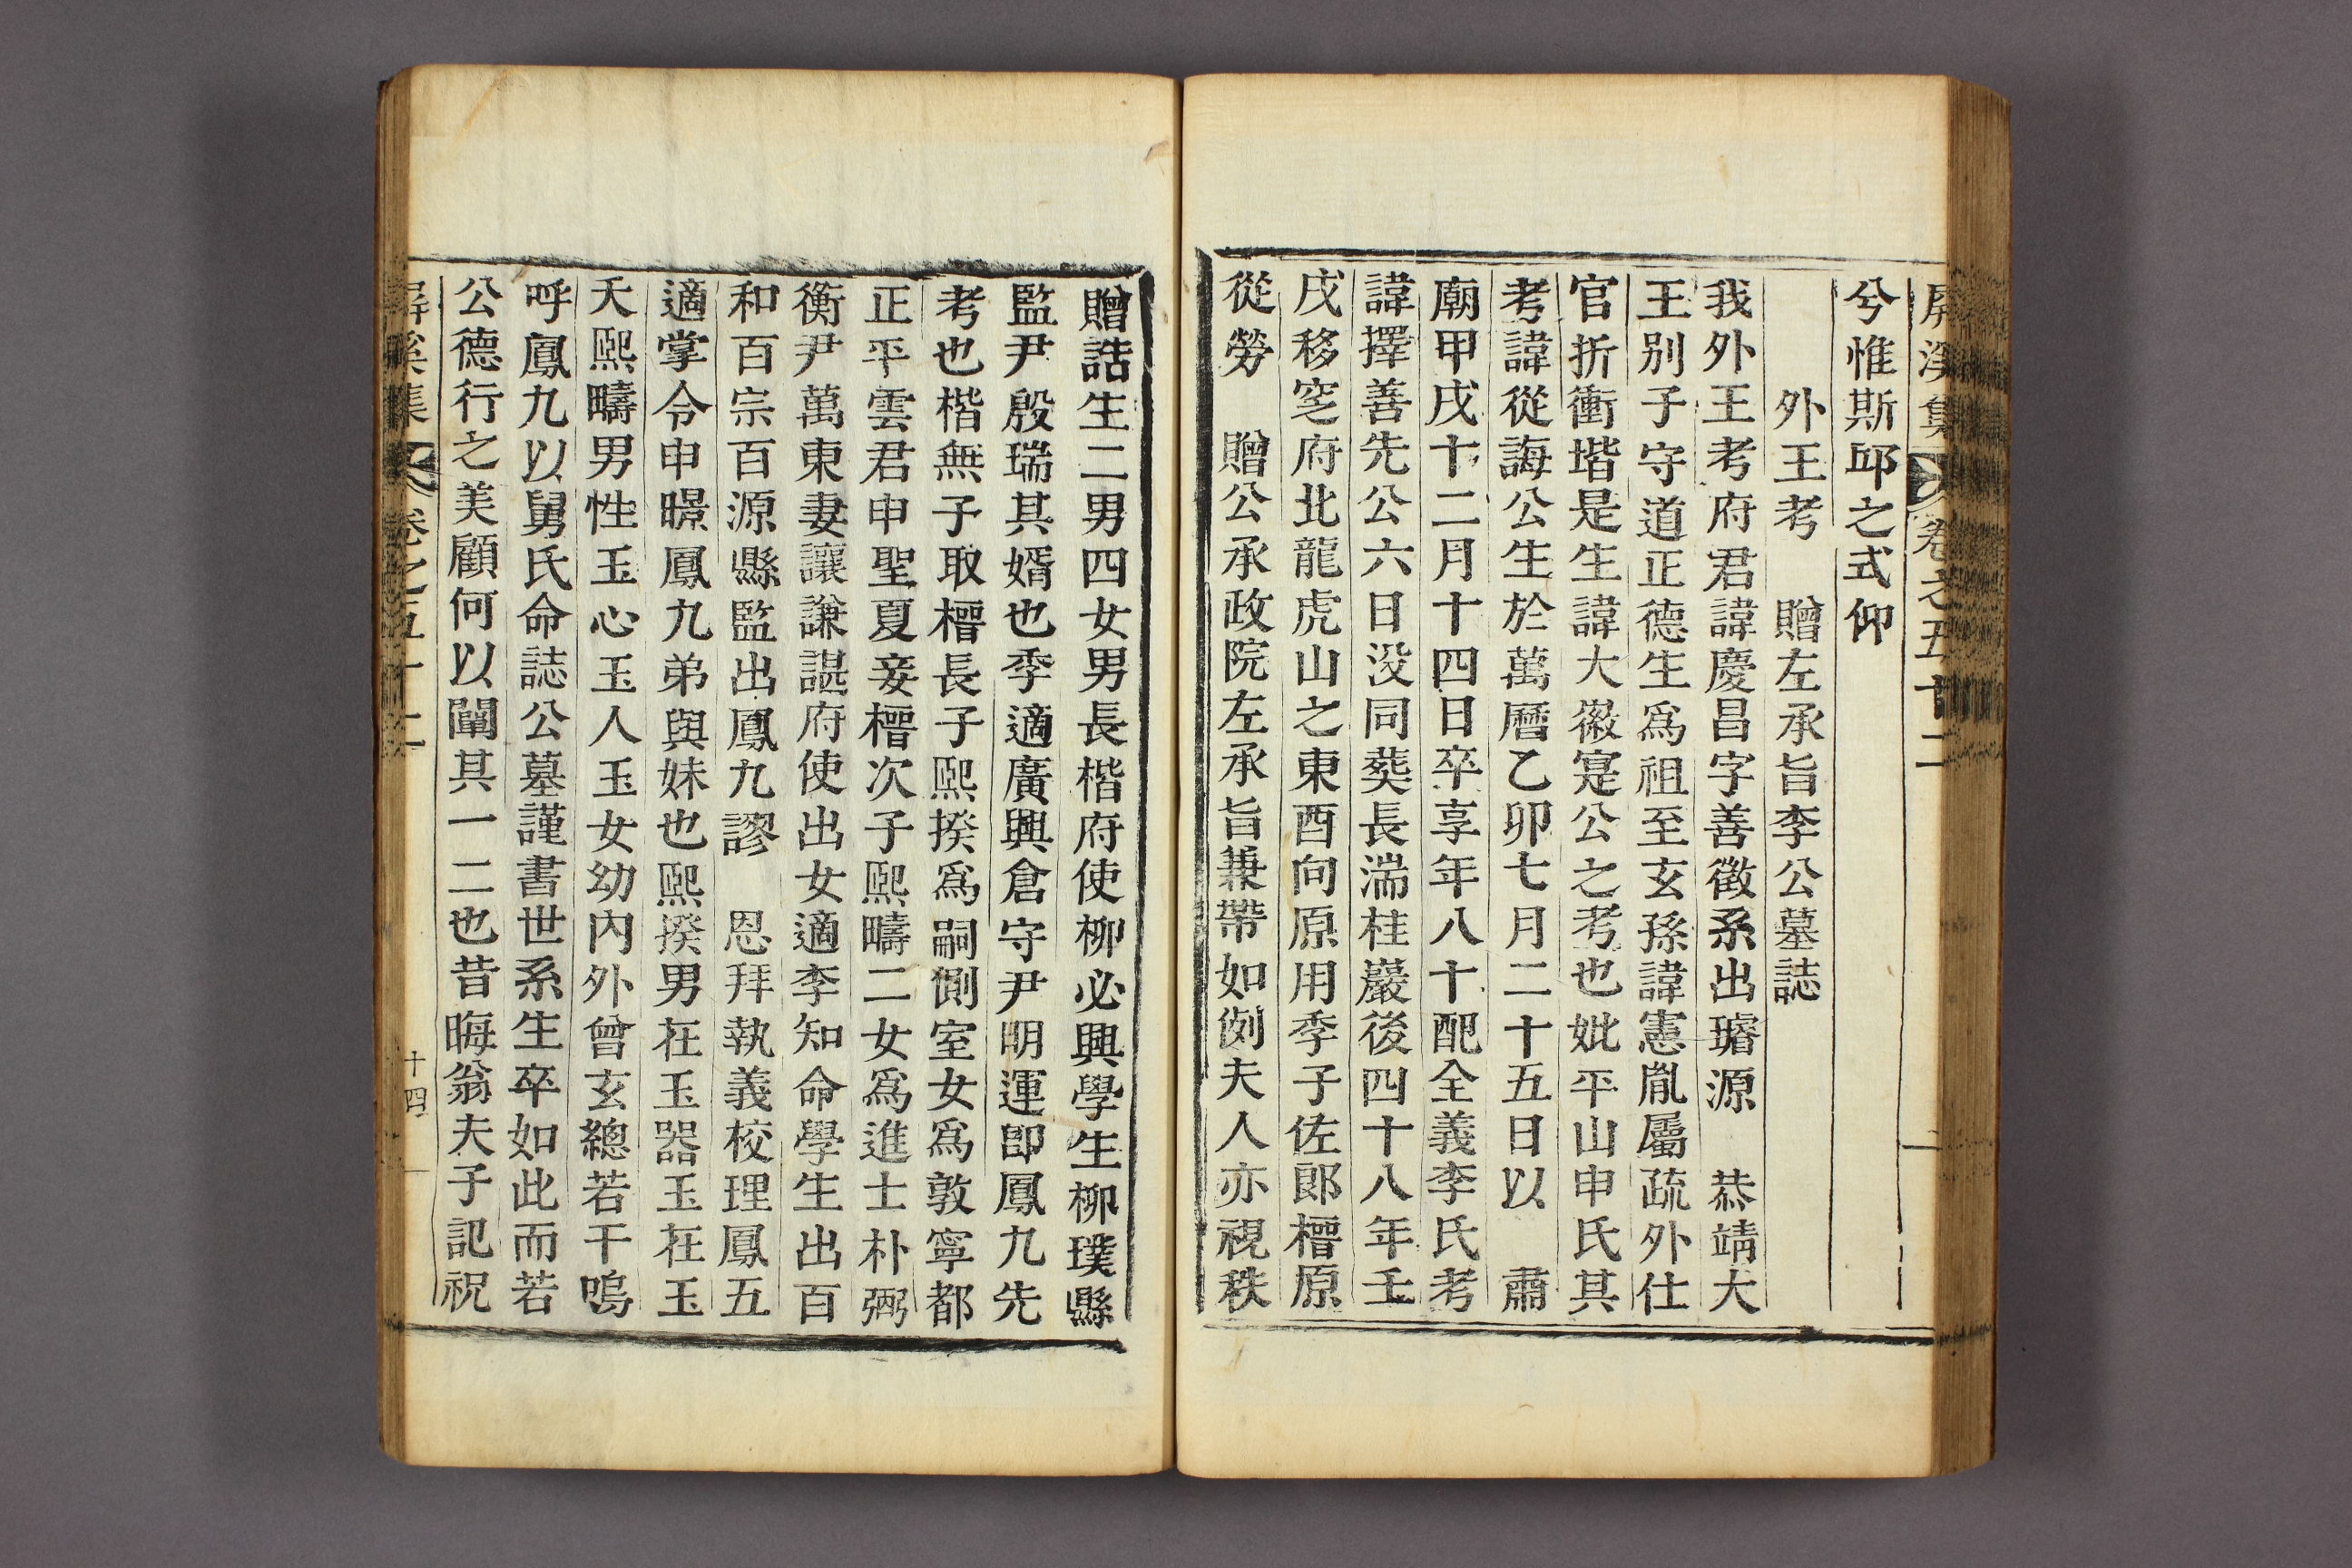 屏溪集 卷之五十二
兮惟斯邱之式仰
外王考 贈左承旨李公墓誌
我外王考府君諱慶昌字善徵系出璿源 恭靖大
王别子守道正德生爲祖至玄孫諱憲胤屬疏外仕
官折衝堦是生諱大徽寔公之考也妣平山申氏其
考諱從誨公生於萬曆乙卯七月二十五日以 肅
廟甲戌十二月十四日卒享年八十配全義李氏考
諱擇善先公六日没同葬長湍桂巖後四十八年壬
戌移窆府北龍虎山之東酉向原用季子佐郞榗原
從勞 贈公承政院左承旨兼帶如例夫人亦視秩
贈誥生二男四女男長楷府使柳必興學生柳璞縣
監尹殷瑞其婿也季適廣興倉守尹明運卽鳳九先
考也楷無子取榗長子熙揆爲嗣側室女爲敦寧都
正平雲君申聖夏妾榗次子熙疇二女爲進士朴弼
衡尹萬東妻讓謙諶府使出女適李知命學生出百
和百宗百源縣監出鳳九謬 恩拜執義校理鳳五
適掌令申暻鳳九弟與妹也熙揆男在玉器玉在玉
夭熙疇男性玉心玉人玉女幼内外曾玄總若干嗚
呼鳳九以舅氏命誌公墓謹書世系生卒如此而若
公德行之美顧何以闡其一二也昔晦翁夫子記祝
屏溪集 卷之五十二 十四